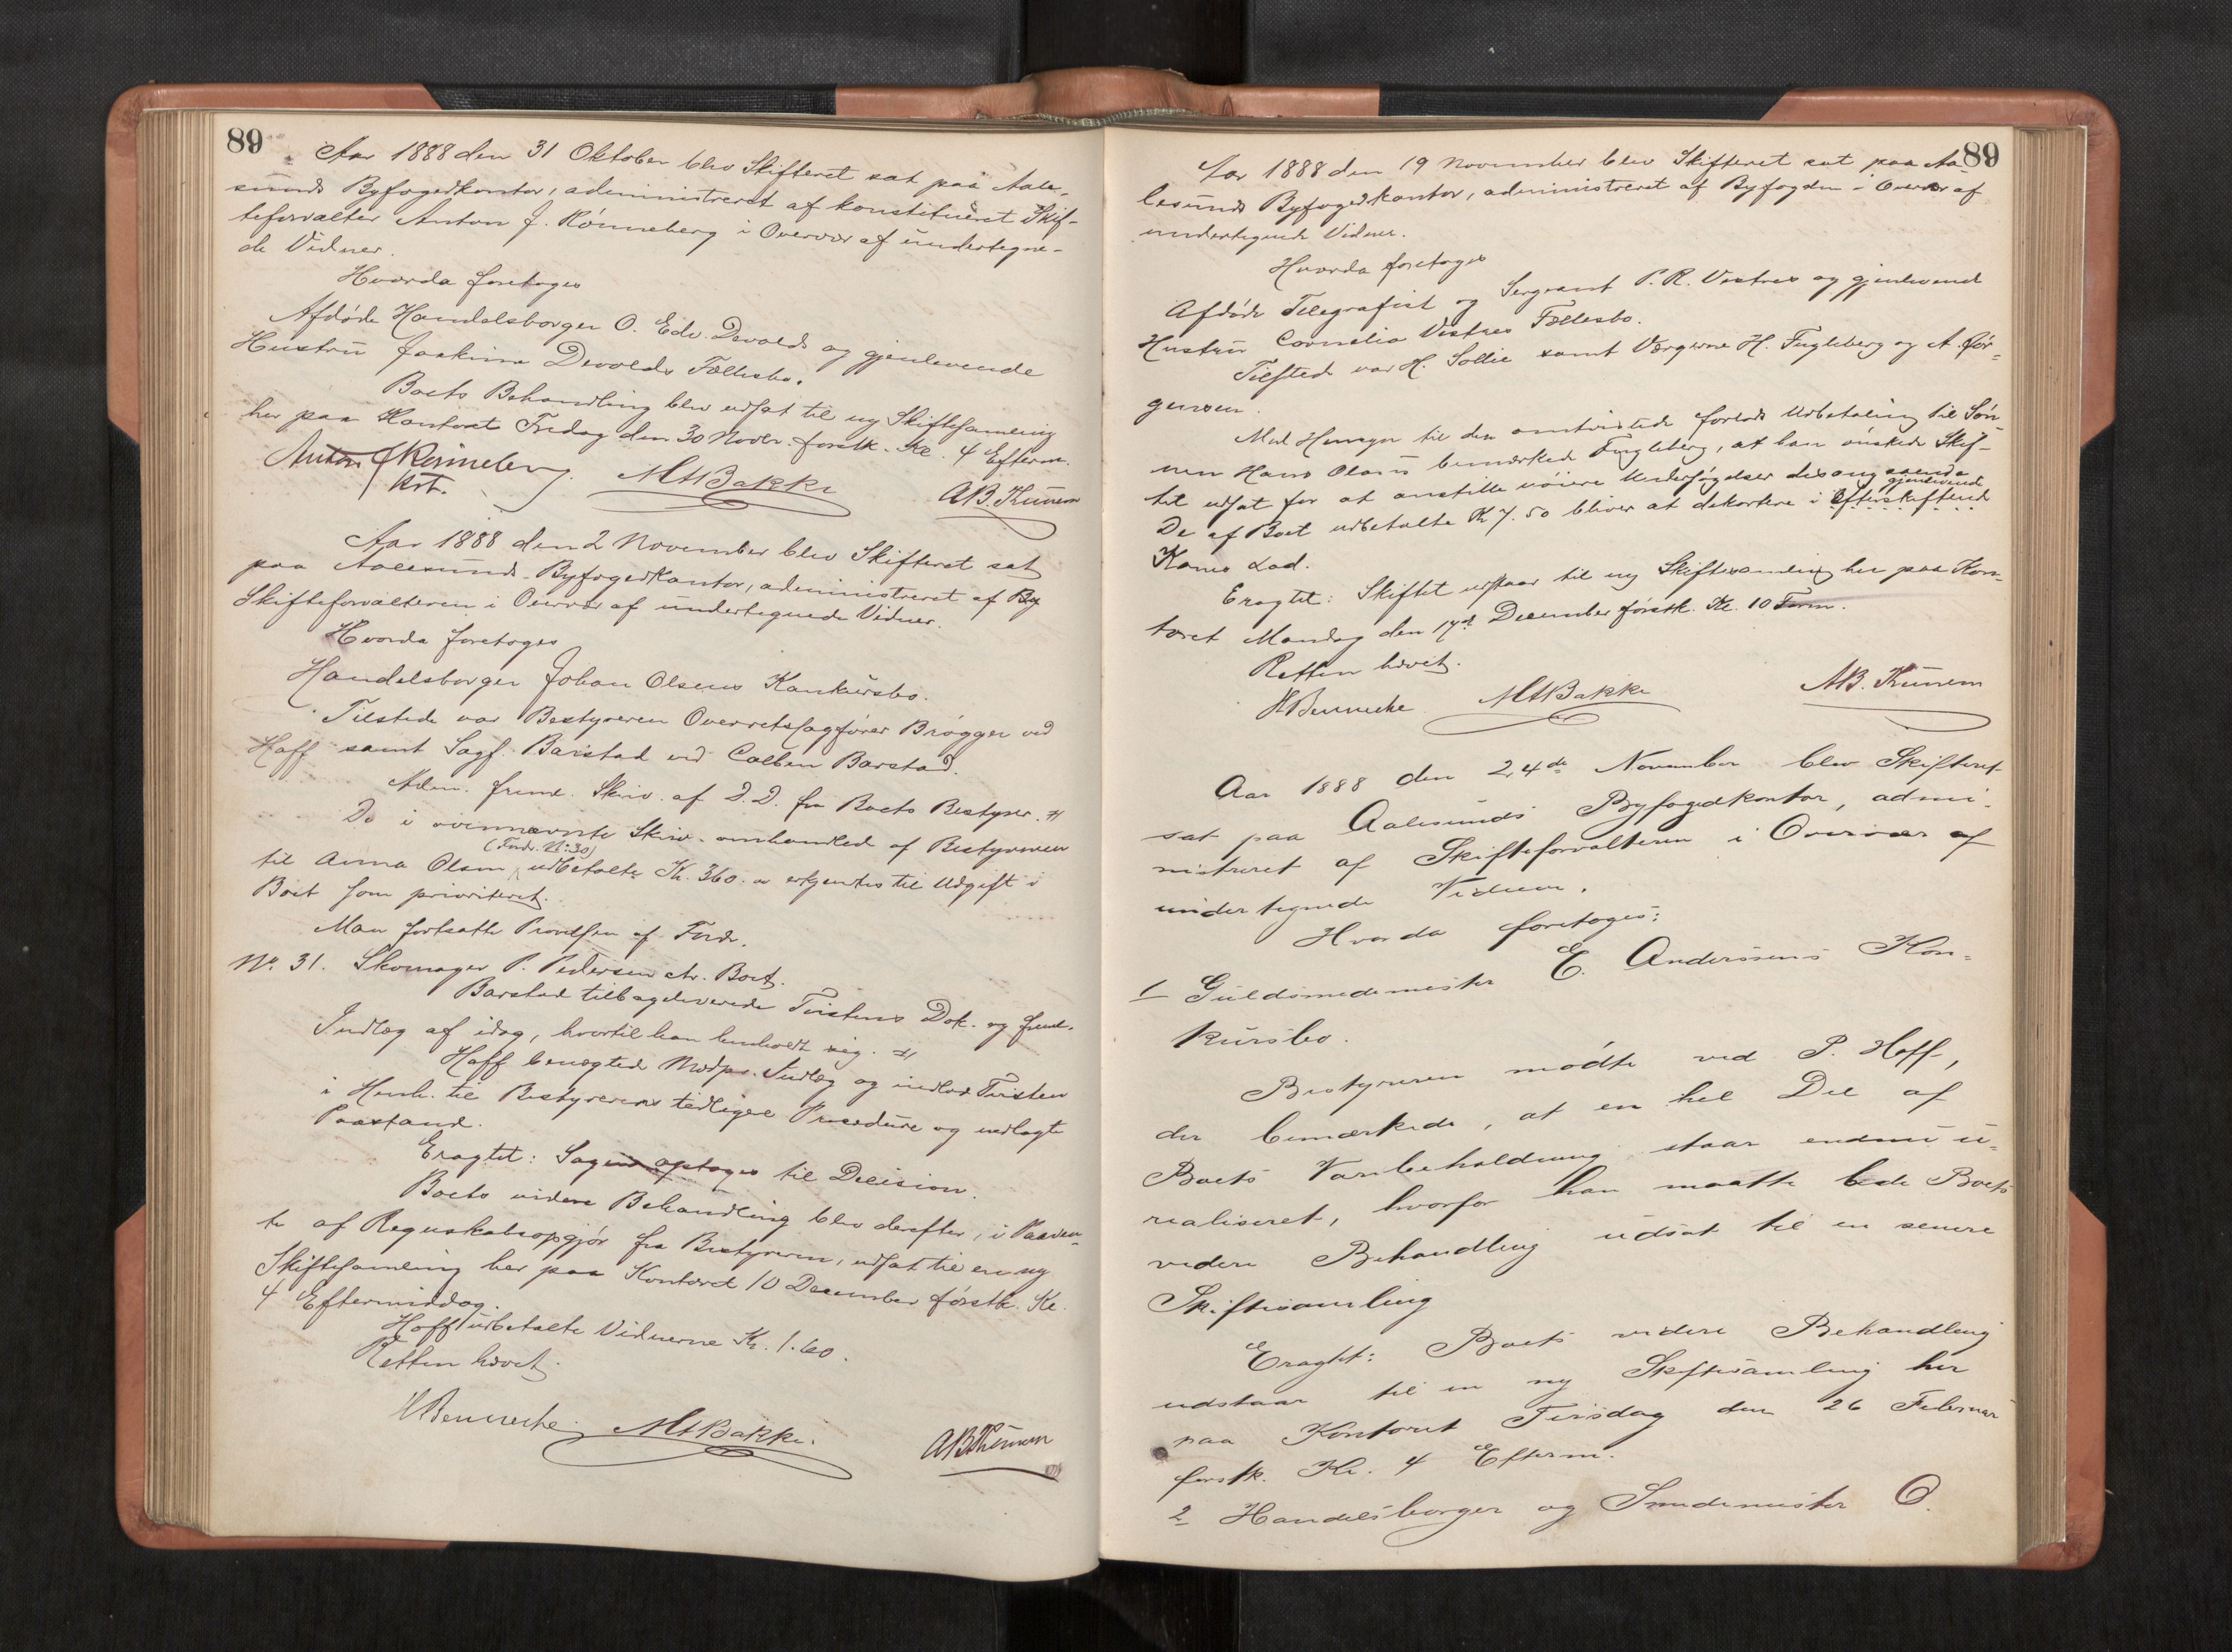 89
Aar 1888 den 31 Oktober blev Skifteret sat paa Aale-
sunds Byfogedkontor, administreret af konstitueret Skif-
teforvalter Anton J. Rönneberg i Overvær af undertegne-
de Vidner.
Hvorda foretoges
Afdöde Handelsborger O. Edv. Devolds og gjenlevende
Hustru Joakime Devolds Fællesbo.
Boets Behandling blev udsat til ny Skiftesamling
her paa Kontoret Fredag den 30 Novbr. förstk. Kl. 4 Efterm.
Anton J Rönneberg. MABakke AB. Thunem
kst.
Aar 1888 den 2 November blev Skifteret sat
paa Aalesunds Byfogedkontor, administreret af
Skifteforvalteren i Overvær af undertegnede Vidner.
Hvorda foretoges
Handelsborger Johan Olsens Konkursbo.
Tilstede var Bestyreren Overretssagförer Brögger ved
Hoff samt Sagf. Barstad ved Barstad.
Adm. freml. Skriv. af D.D. fra Boets Bestyrer.
De i ovennævnte Skriv. omhandled af Bestyreren
(Fordr. N: 30)
til Anna Olsen udbetalte Kr. 360. erkjendtes til Udgift i
Boet som prioriteret.
Man fortsatte Prövelsen af Fordr.
No. 31. Skomager P. Pedersen ctr. Boet.
Barstad tilbageleverede Tvistens Dok. og freml.
Indlæg af idag, hvortil han henholdt sig.
Hoff benægtede Modp. Indlæg og indlod Tvisten
i Henh. til Bestyrerens tidligere Procedure og nedlagte
Paastand.
Eragtet: Sagen optoges til Decision.
Boets videre Behandling blev derefter, i Paaven-
te af Regnskabsopgjör fra Bestyreren, udsat til en ny
Skiftesamling her paa Kontoret 10 December förstk. Kl.
4 Eftermiddag.
Hoff udbetalte Vidnerne Kr. 1.60.
Retten hævet.
HBenneche. MABakke. ABThunem
89
Aar 1888 den 19 November blev Skifteret sat paa Aa-
lesunds Byfogedkontor, administreret af Byfogden i Overvær af
undertegnede Vidner.
Hvorda foretoges
Afdöde Telegrafist og Sergeant P. R. Vestres og gjenlevende
Hustru Cornelia Vestres Fællesbo.
Tilsted var H. Sollie samt Værgerne H. Fugleberg og A. Jör-
gensen.
Med Hensyn til den omtvistede forlods Udbetaling til Sön-
nen Hans Olaus bemærked Fugleberg, at han önskede Skif-
tet udsat for at anstille nöiere Undersögelser desangaaende
gjenlevende
De af Boet udbetalte Kr 7.50 bliver at dekortere i Efterskiftend
Kones Lod.
Eragtet: Skiftet udstaar til ny Skiftesamling her paa Kon-
toret Mandag den 17d December förstk. Kl. 10 Form.
Retten hævet.
HBenneche MABakke AB. Thunem
Aar 1888 den 24de November blev Skifteret
sat paa Aalesunds Byfogedkontor, admi-
nistreret af Skifteforvalteren i Overvær af
undertegnede Vidner.
Hvorda foretoges:
1 Guldsmedemester E. Anderssens Kon-
kursbo.
Bestyreren mödte ved P. Hoff,
der bemærkede, at en hel Del af
Boets Varebeholdning staar endnu u-
realiseret, hvorfor han maatte bede Boets
videre Behandling udsat til en senere
Skiftesamling
Eragtet: Boets videre Behandling
udstaar til en ny Skiftesamling her
paa Kontoret Tirsdag den 26 Februar
förstk. Kl. 4 Efterm.
2 Handelsborger og Smedemester O.